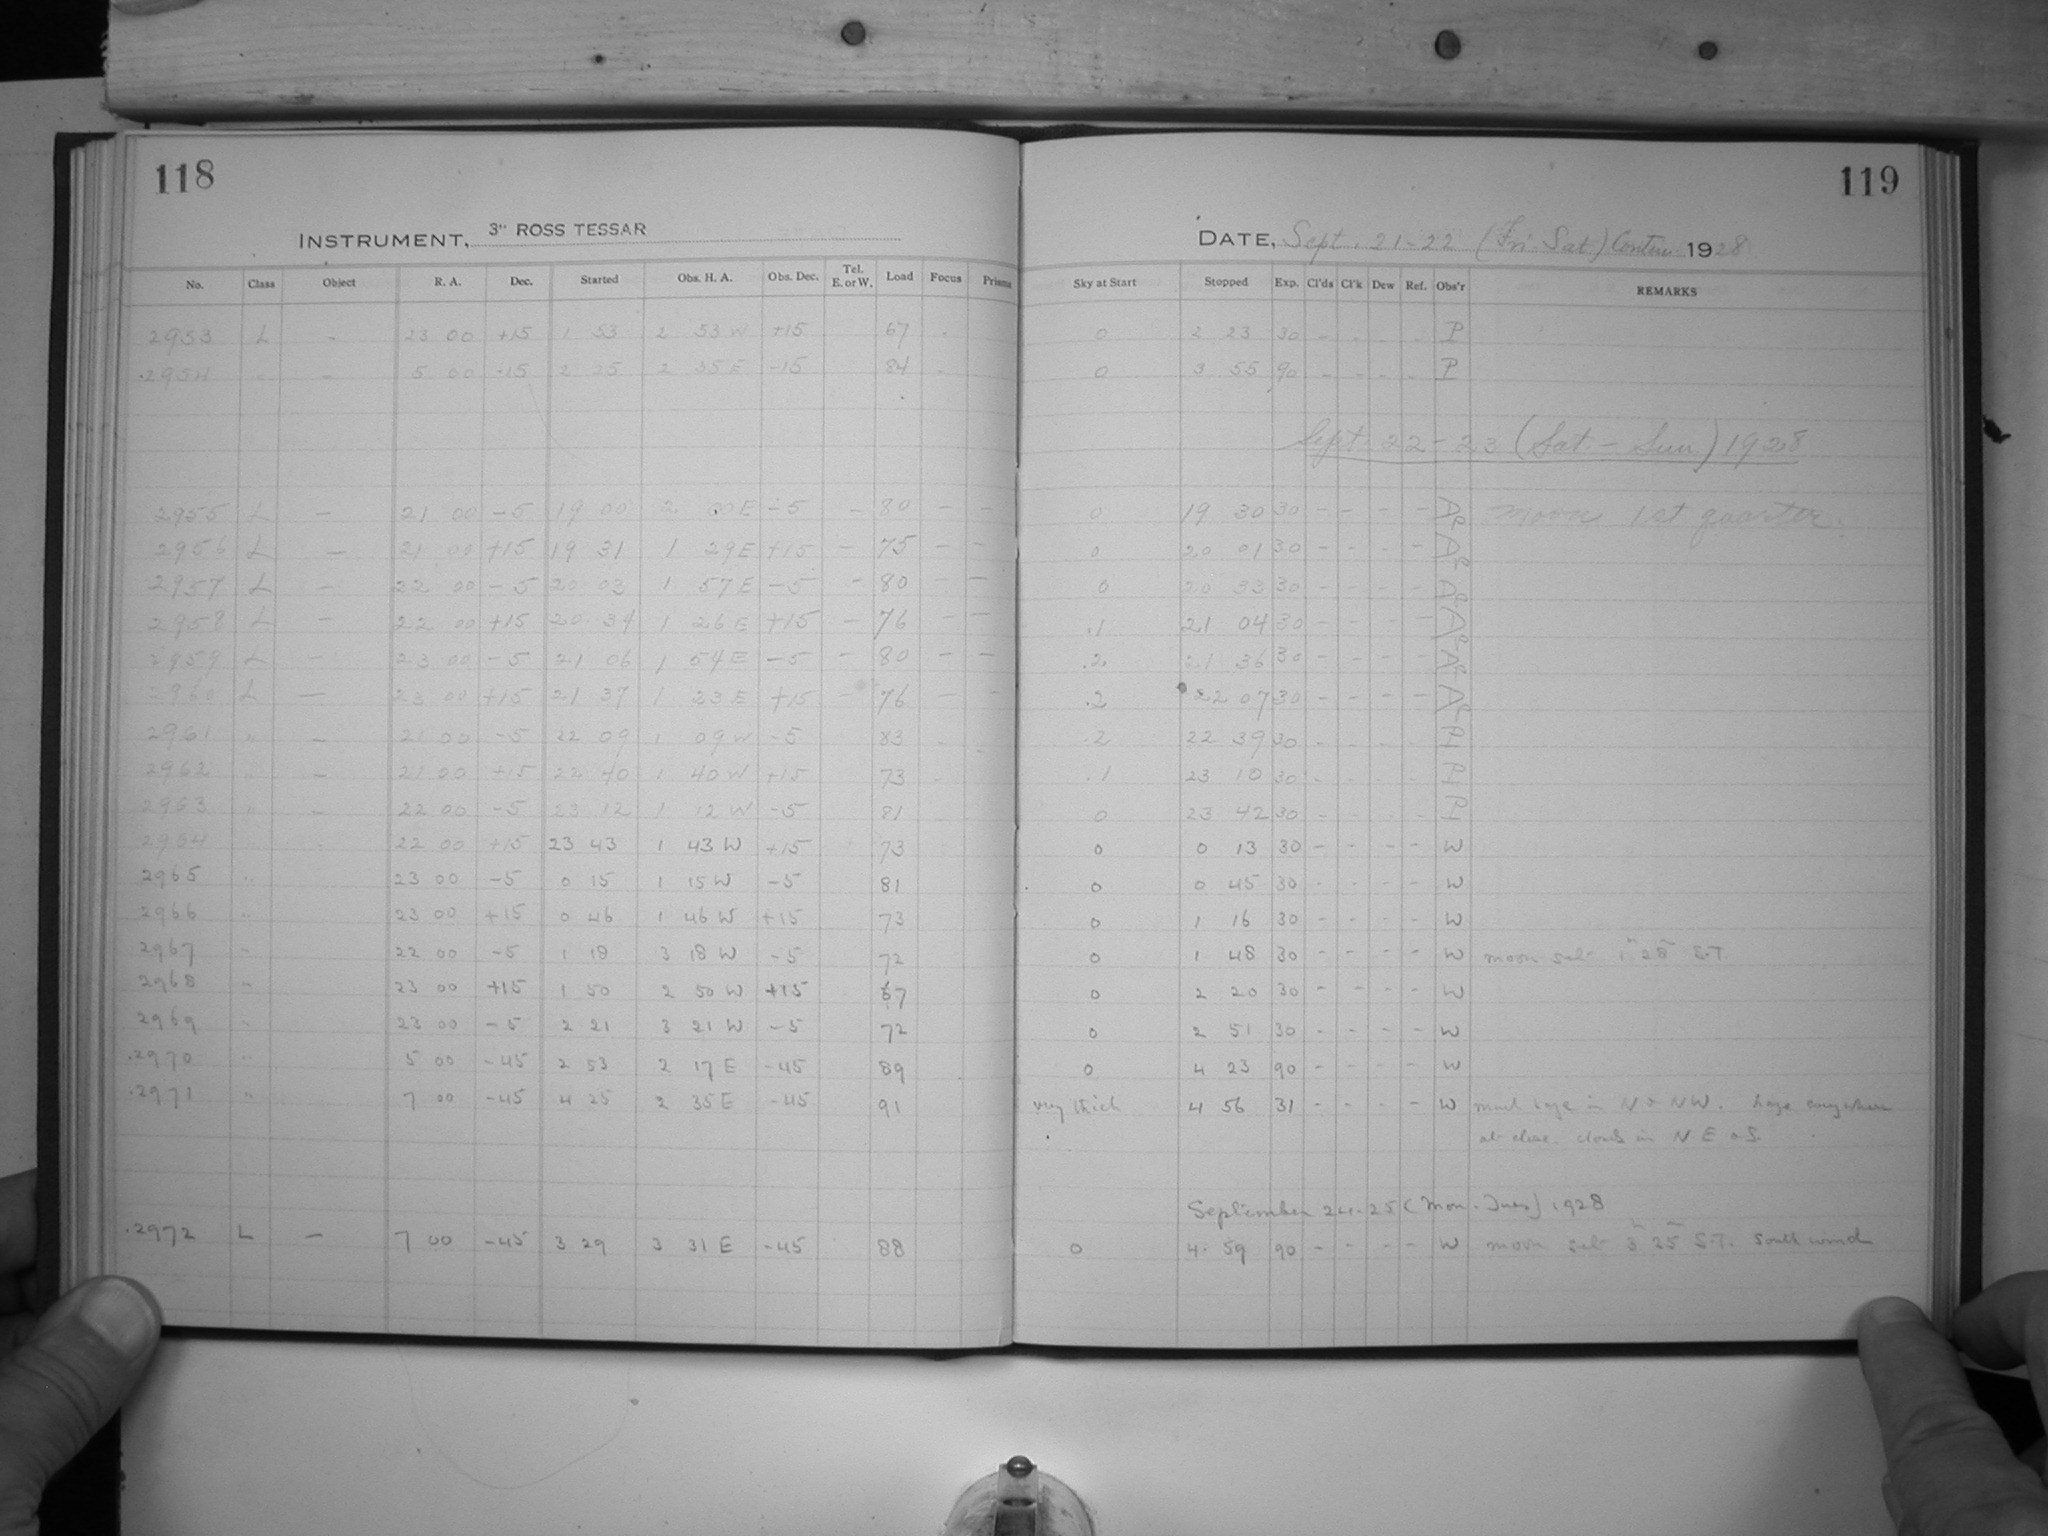 118
119
INSTRUMENT, 3" ROSS TESSAR
DATE, Sept. 21-22 (Fri-Sat) Contin. 1928
No. Class Object R. A. Dec. Started Obs. H. A. Obs. Dec. Tel. E. or W. Load Focus Prisms Sky at Start Stopped Exp. Cl'ds Cl'k Dew Ref. Obs'r REMARKS
2953 L - 23 00 +15 1 53 2 53 W +15 67 - 0 2 23 30 - - - - P
.2954 " - 5 00 -15 2 25 2 35 E -15 84 - 0 3 55 90 - - - - P
Sept. 22-23 (Sat.-Sun) 1928
2955 L - 21 00 -5 19 00 2 00 E -5 - 80 - - 0 19 30 30 - - - - Ap moon 1st quarter.
2956 L - 21 00 +15 19 31 1 29 E +15 - 75 - - 0 20 01 30 - - - - Ap
2957 L - 22 00 -5 20 03 1 57 E -5 - 80 - - 0 20 33 30 - - - - Ap
2958 L - 22 00 +15 20 34 1 26 E +15 - 76 - - .1 21 04 30 - - - - Ap
2959 L - 23 00 -5 21 06 1 54 E -5 - 80 - - .2 21 36 30 - - - - Ap
2960 L - 23 00 +15 21 37 1 23 E +15 - 76 - - .2 22 07 30 - - - - Ap
2961 " - 21 00 -5 22 09 1 09 W -5 83 - - .2 22 39 30 - - - - P
2962 " - 21 00 +15 22 40 1 40 W +15 73 - .1 23 10 30 - - - - P
2963 " - 22 00 -5 23 12 1 12 W -5 81 0 23 42 30 - - - - P
2964 " - 22 00 +15 23 43 1 43 W +15 73 0 0 13 30 - - - - W
2965 " 23 00 -5 0 15 1 15 W -5 81 0 0 45 30 - - - - W
2966 " 23 00 +15 0 46 1 46 W +15 73 0 1 16 30 - - - - W
2967 " 22 00 -5 1 18 3 18 W -5 72 0 1 48 30 - - - - W moon set 1h 28m S.T
2968 " 23 00 +15 1 50 2 50 W +15 67 0 2 20 30 - - - - W
2969 " 23 00 -5 2 21 3 21 W -5 72 0 2 51 30 - - - - W
.2970 " 5 00 -45 2 53 2 17 E -45 89 0 4 23 90 - - - - W
.2971 " 7 00 -45 4 25 2 35 E -45 91 very thick 4 56 31 - - - - W much haze in N & NW. haze everywhere
at close. clouds in N E & S.
September 24-25 (Mon.-Tues) 1928
.2972 L - 7 00 -45 3 29 3 31 E -45 88 0 4 59 90 - - - - W moon set 3h 25m S.T. South wind